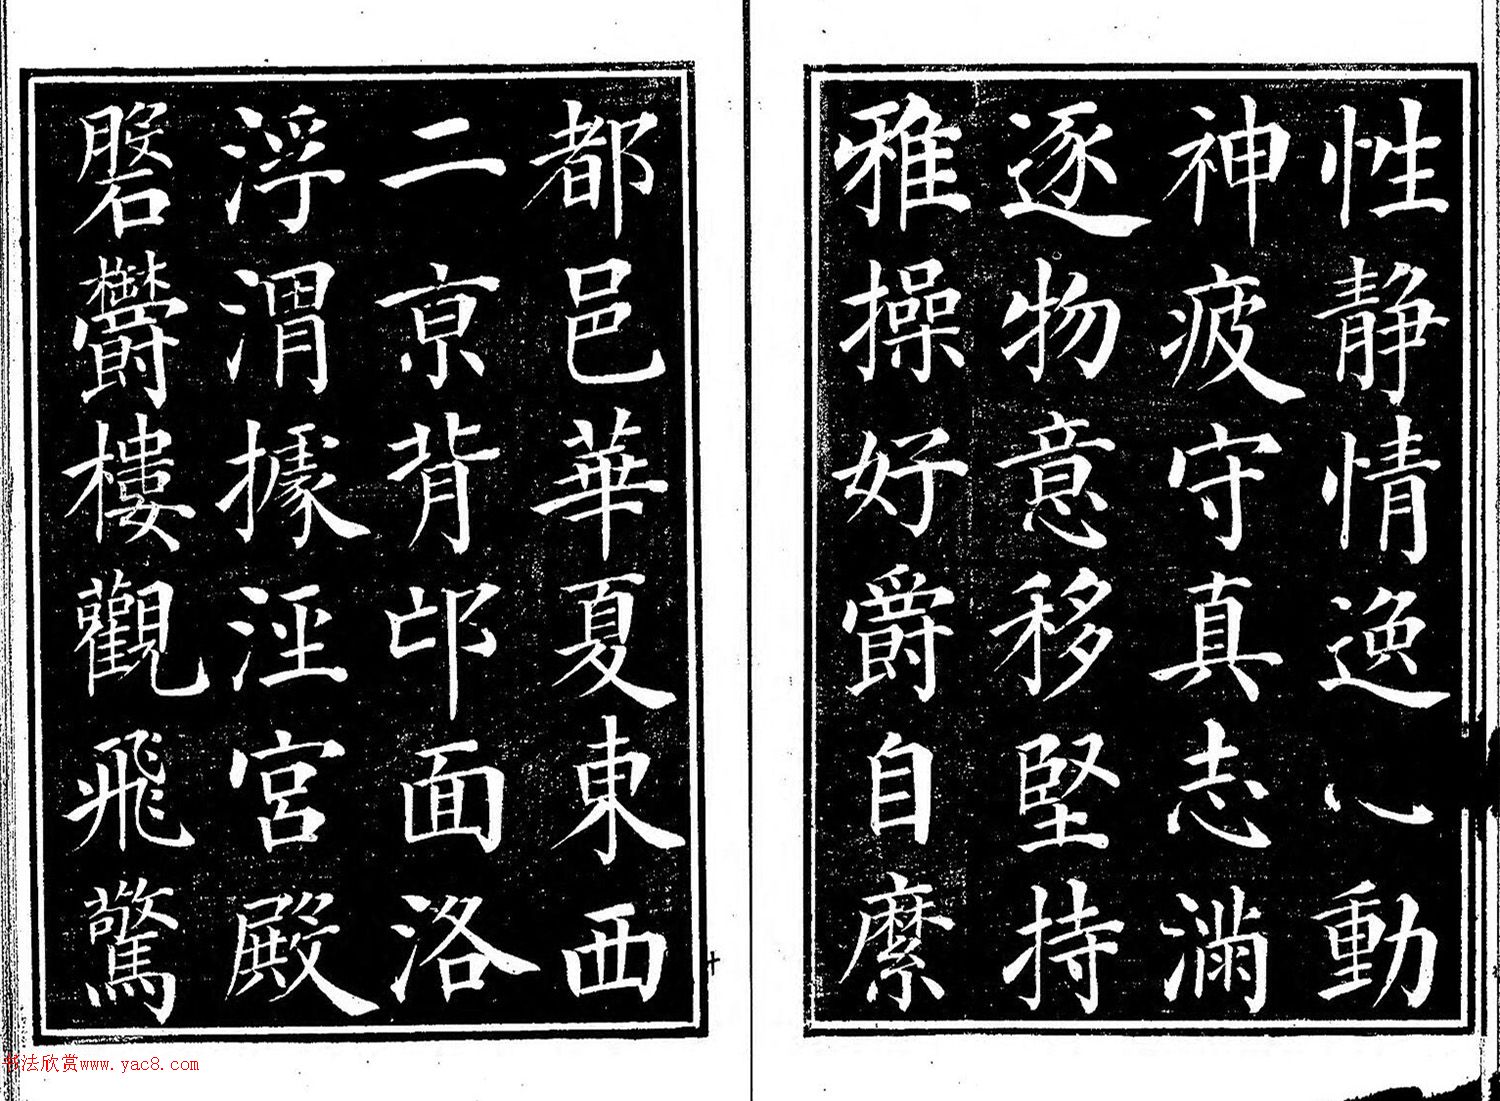 性靜情逸心動
神疲守真志滿
逐物意移堅持
雅操好爵自縻
都邑華夏東西
二京背邙面洛
浮渭據涇宮殿
盤鬱樓觀飛驚
书法欣赏www.yac8.com